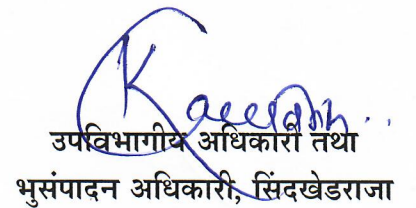 उपविभागीय अधिकारी तथा
भुसंपादन अधिकारी, सिंदखेडराजा